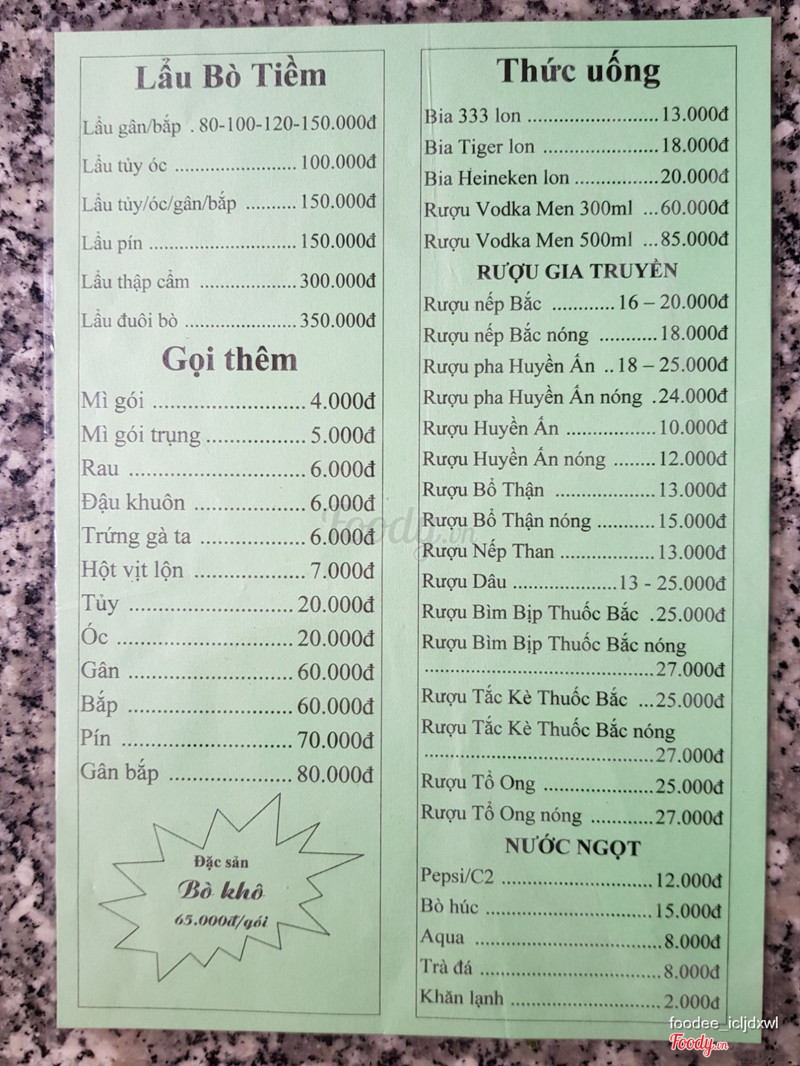 Lẩu Bò Tiềm
Lẩu gân/bắp . 80-100-120-150.000đ
Lẩu tủy óc ........................... 100.000đ
Lẩu tủy/óc/gân/bắp .......... 150.000đ
Lẩu pín ................................ 150.000đ
Lẩu thập cẩm ..................... 300.000đ
Lẩu đuôi bò ........................ 350.000đ
Gọi thêm
Mì gói ........................ 4.000đ
Mì gói trụng ................ 5.000đ
Rau ............................ 6.000đ
Đậu khuôn .................. 6.000đ
Trứng gà ta ................. 6.000đ
Hột vịt lộn .................. 7.000đ
Tủy .......................... 20.000đ
Óc ............................ 20.000đ
Gân .......................... 60.000đ
Bắp .......................... 60.000đ
Pín ........................... 70.000đ
Gân bắp ................... 80.000đ
Đặc sản
Bò khô
65.000đ/gói
Thức uống
Bia 333 lon ........................ 13.000đ
Bia Tiger lon ..................... 18.000đ
Bia Heineken lon ................ 20.000đ
Rượu Vodka Men 300ml ... 60.000đ
Rượu Vodka Men 500ml ... 85.000đ
RƯỢU GIA TRUYỀN
Rượu nếp Bắc ............ 16 – 20.000đ
Rượu nếp Bắc nóng ........... 18.000đ
Rượu pha Huyền Ấn .. 18 – 25.000đ
Rượu pha Huyền Ấn nóng . 24.000đ
Rượu Huyền Ấn ................ 10.000đ
Rượu Huyền Ấn nóng ........ 12.000đ
Rượu Bổ Thận ................... 13.000đ
Rượu Bổ Thận nóng ........... 15.000đ
Rượu Nếp Than .................. 13.000đ
Rượu Dâu .................... 13 - 25.000đ
Rượu Bìm Bịp Thuốc Bắc . 25.000đ
Rượu Bìm Bịp Thuốc Bắc nóng
.......................................... 27.000đ
Rượu Tắc Kè Thuốc Bắc ... 25.000đ
Rượu Tắc Kè Thuốc Bắc nóng
.......................................... 27.000đ
Rượu Tổ Ong .................... 25.000đ
Rượu Tổ Ong nóng ............ 27.000đ
NƯỚC NGỌT
Pepsi/C2 ............................ 12.000đ
Bò húc ............................... 15.000đ
Aqua .................................. 8.000đ
Trà đá ................................. 8.000đ
Khăn lạnh ........................... 2.000đ
Foody.vn
foodee_icljdxwl
Foody.vn